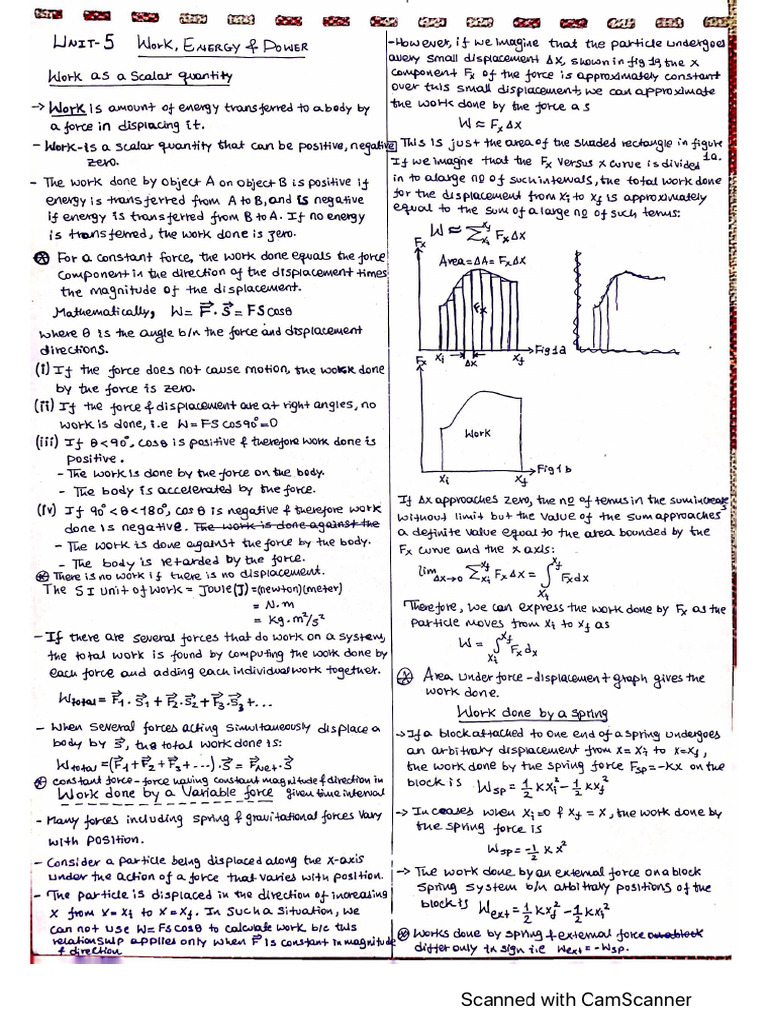 UNIT-5 WORK, ENERGY & POWER
Work as a Scalar quantity
-> Work is amount of energy transferred to a body by
a force in displacing it.
- Work-is a scalar quantity that can be positive, negative
zero.
- The work done by object A on object B is positive if
energy is transferred from A to B, and is negative
if energy is transferred from B to A. If no energy
is transferred, the work done is zero.
⊛ For a constant force, the work done equals the force
component in the direction of the displacement times
the magnitude of the displacement.
Mathematically, W = F⃗ . S⃗ = FScosθ
where θ is the angle b/n the force and displacement
directions.
(i) If the force does not cause motion, the work done
by the force is zero.
(ii) If the force & displacement are at right angles, no
work is done, i.e W=FScos90°=0
(iii) If θ<90°, cosθ is positive & therefore work done is
positive.
- The work is done by the force on the body.
- The body is accelerated by the force.
(iv) If 90°<θ<180°, cos θ is negative & therefore work
done is negative. The work is done against the
- The work is done against the force by the body.
- The body is retarded by the force.
⊛ There is no work if there is no displacement.
The SI unit of work = Joule(J) = (newton)(meter)
= N.m
= kg.m²/s²
- If there are several forces that do work on a system,
the total work is found by computing the work done by
each force and adding each individual work together.
Wtotal = F⃗₁ . S⃗₁ + F⃗₂ . S⃗₂ + F⃗₃ . S⃗₃ + ...
- When several forces acting simultaneously displace a
body by S⃗, the total work done is:
Wtotal = (F⃗₁ + F⃗₂ + F⃗₃ + ...) . S⃗ = F⃗net . S⃗
⊛ constant force - force having constant magnitude & direction in
Work done by a Variable force given time interval
- Many forces including spring & gravitational forces vary
with position.
- Consider a particle being displaced along the x-axis
under the action of a force that varies with position.
- The particle is displaced in the direction of increasing
x from x=xi to x=xf. In such a situation, we
can not use W=FScosθ to calculate work b/c this
relationship applies only when F⃗ is constant in magnitude
& direction
- However, if we imagine that the particle undergoes
avery small displacement Δx, shown in fig 1a the x
component Fx of the force is approximately constant
over this small displacement, we can approximate
the work done by the force as
W ≈ FxΔx
This is just the area of the shaded rectangle in figure
1a.
If we imagine that the Fx versus x curve is divided
in to a large no of such intervals, the total work done
for the displacement from xi to xf is approximately
equal to the sum of a large no of such terms:
W ≈ Σ xf xi FxΔx
Fx
Area = ΔA = FxΔx
Fx
xi Δx xf Fig 1a
Fx
Work
xi xf Fig 1b
If Δx approaches zero, the no of terms in the sum increases
without limit but the value of the sum approaches
a definite value equal to the area bounded by the
Fx curve and the x axis:
lim Δx→0 Σ xf xi FxΔx = ∫ xf xi Fxdx
Therefore, we can express the work done by Fx as the
particle moves from xi to xf as
W = ∫ xf xi Fxdx
⊛ Area under force-displacement graph gives the
work done.
Work done by a spring
-> If a block attached to one end of a spring undergoes
an arbitrary displacement from x=xi to x=xf,
the work done by the spring force Fsp=-kx on the
block is Wsp = 1/2 kxi² - 1/2 kxf²
-> In ceases when xi=0 & xf=x, the work done by
the spring force is
Wsp = -1/2 kx²
-> The work done by an external force on a block
spring system b/n arbitrary positions of the
block is Wext = 1/2 kxf² - 1/2 kxi²
⊛ Works done by spring & external force on a block
differ only in sign i.e Wext = -Wsp.
Scanned with CamScanner